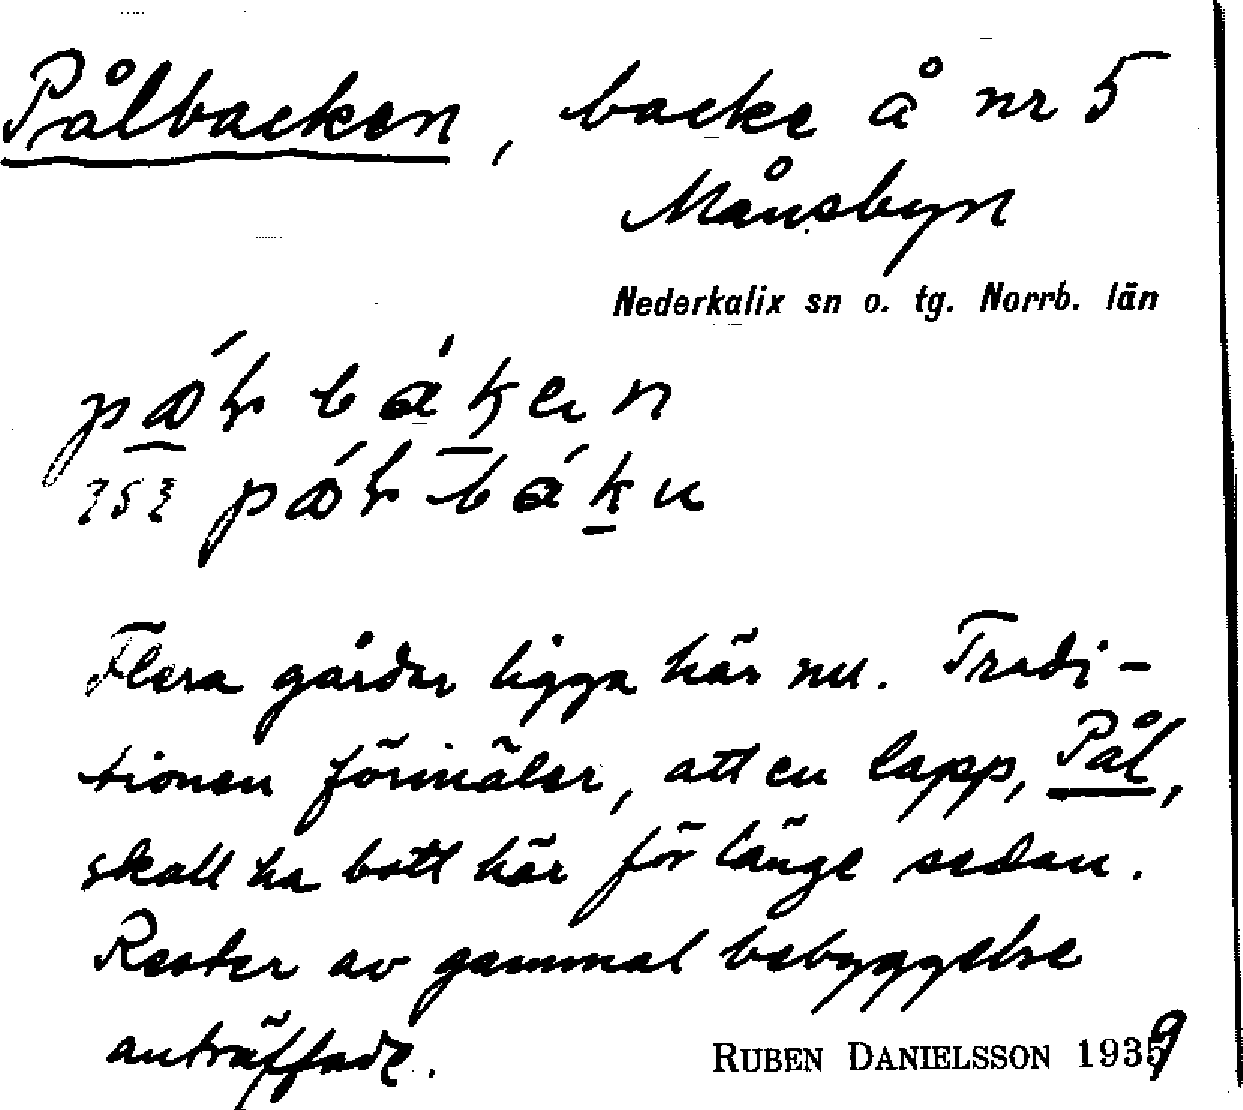 Pålbacken, backe å nr 5
Månsbyn
Nederkalix sn o. tg. Norrb. län
Flera gårdar ligga här nu. Tradi-
tionen förmäler, att en lapp, Pål,
skall ha bott här för länge sedan.
Rester av gammal bebyggelse
anträffade.
RUBEN DANIELSSON 1939